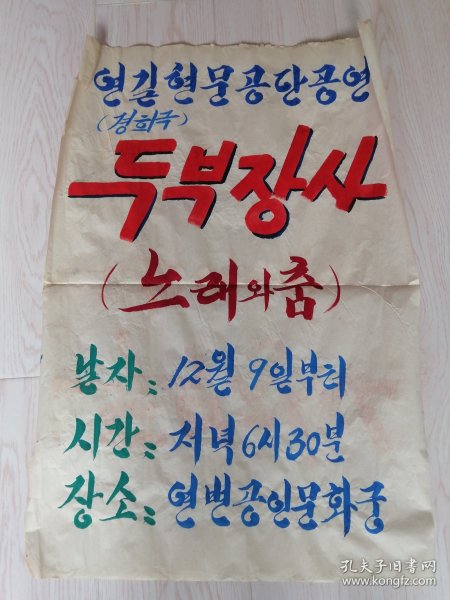 연길현문공단공연
(경희극)
두부장사
(노래와춤)
날자: 12월 9일부터
시간: 저녁 6시 30분
장소: 연변공인문화궁
孔夫子旧书网
www.kongfz.com